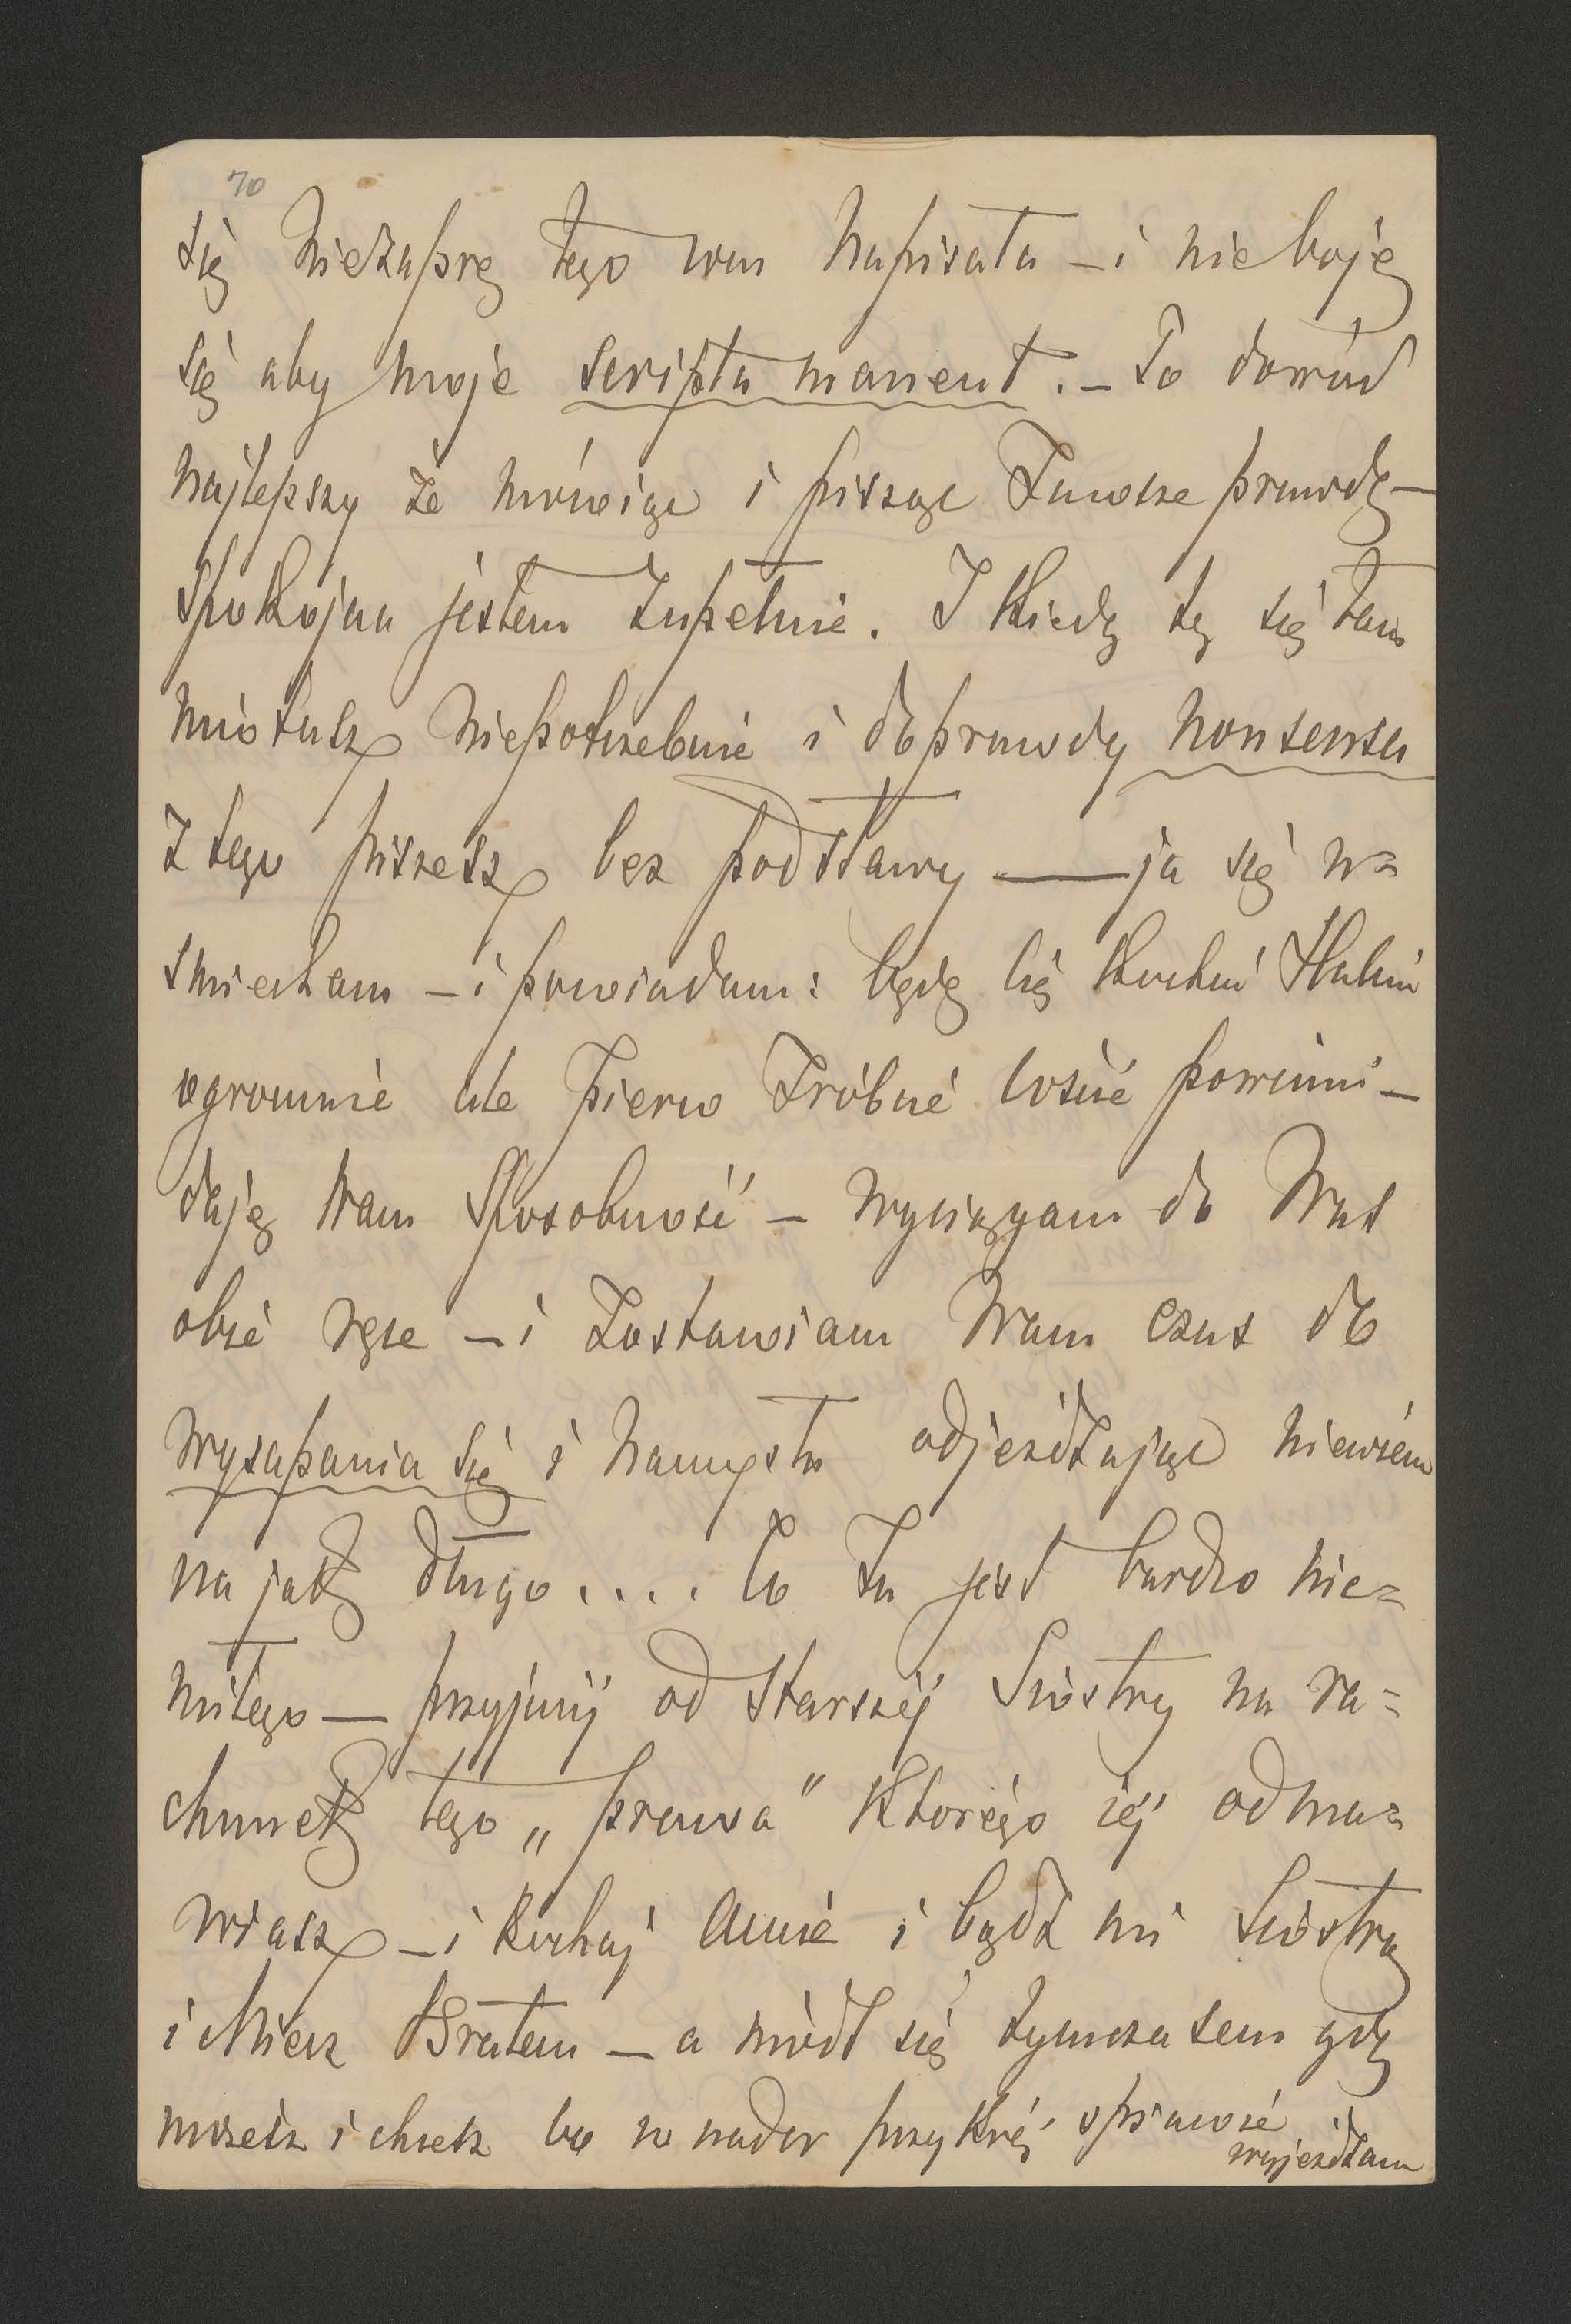 70
się niezaprę tego com napisała – i nie boję
się aby moje scripta manent. – To dowód
najlepszy że mówiąc i pisząc zawsze prawdę –
spokojna jestem zupełnie. I kiedy ty się tam
miotasz niepotrzebnie i doprawdy nonsensa
z tego piszesz bez podstawy — ja się u=
śmiecham – i powiadam: będę Cię kochać
ogromnie ale pierw zróbcie coście powinni –
daję Wam sposobność – wyciągam do Was
obie ręce – i zostawiam Wam czas do
wysapania się i namysłu odjeżdżając niewiem
na jak długo.... Co Ja jest bardzo nie=
miłego — przyjmij od starszéj Siostry na ra=
chunek tego „prawa" którego jéj odma=
wiasz – i kochaj Anię i bądź mi Siostrą
i Miecz Bratem – a módl się tymczasem gdy
możesz i chcesz bo w nader przykréj sprawie
wyjeżdżam